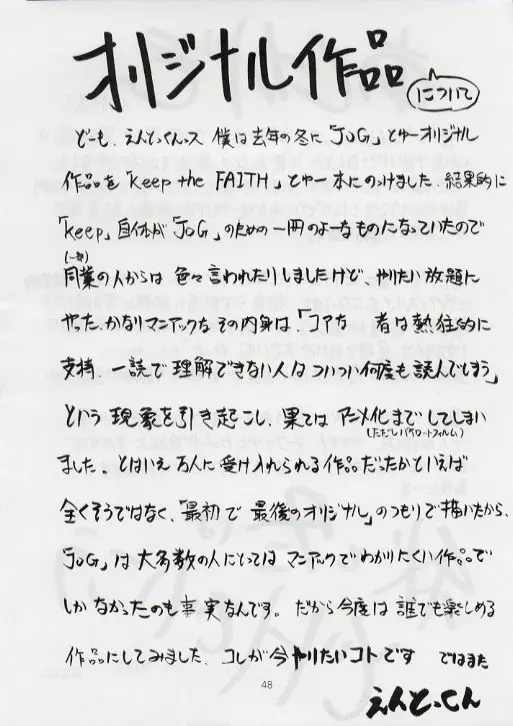 オリジナル作品
について
どーも、えんどっくんっス 僕は去年の冬に「JoG」とゆーオリジナル
作品を「keep the FAITH」とゆー本にのっけました、結果的に
「keep」自体が「JoG」のための一冊のよーなものになっていたので
(一部)
同業の人からは 色々言われたりしましたけど、やりたい放題に
やった、かなりマニアックな その内身は!「コアな 者は熱狂的に
支持、一読で理解できない人は ついつい何度も読んでしまう」
という 現象を引き起こし、果ては アニメ化までしてしまい
(ただしパイロットフィルム)
ました。とはいえ万人に受け入れられる作品だったかといえば
全くそうではなく、「最初で 最後のオリジナル」のつもりで描いたから、
「JoG」は大多数の人にとっては マニアックでわかりにくい作品で
しかなかったのも事実なんです。だから今度は 誰でも楽しめる
作品にしてみました、コレが今やりたいコトです ではまた
48